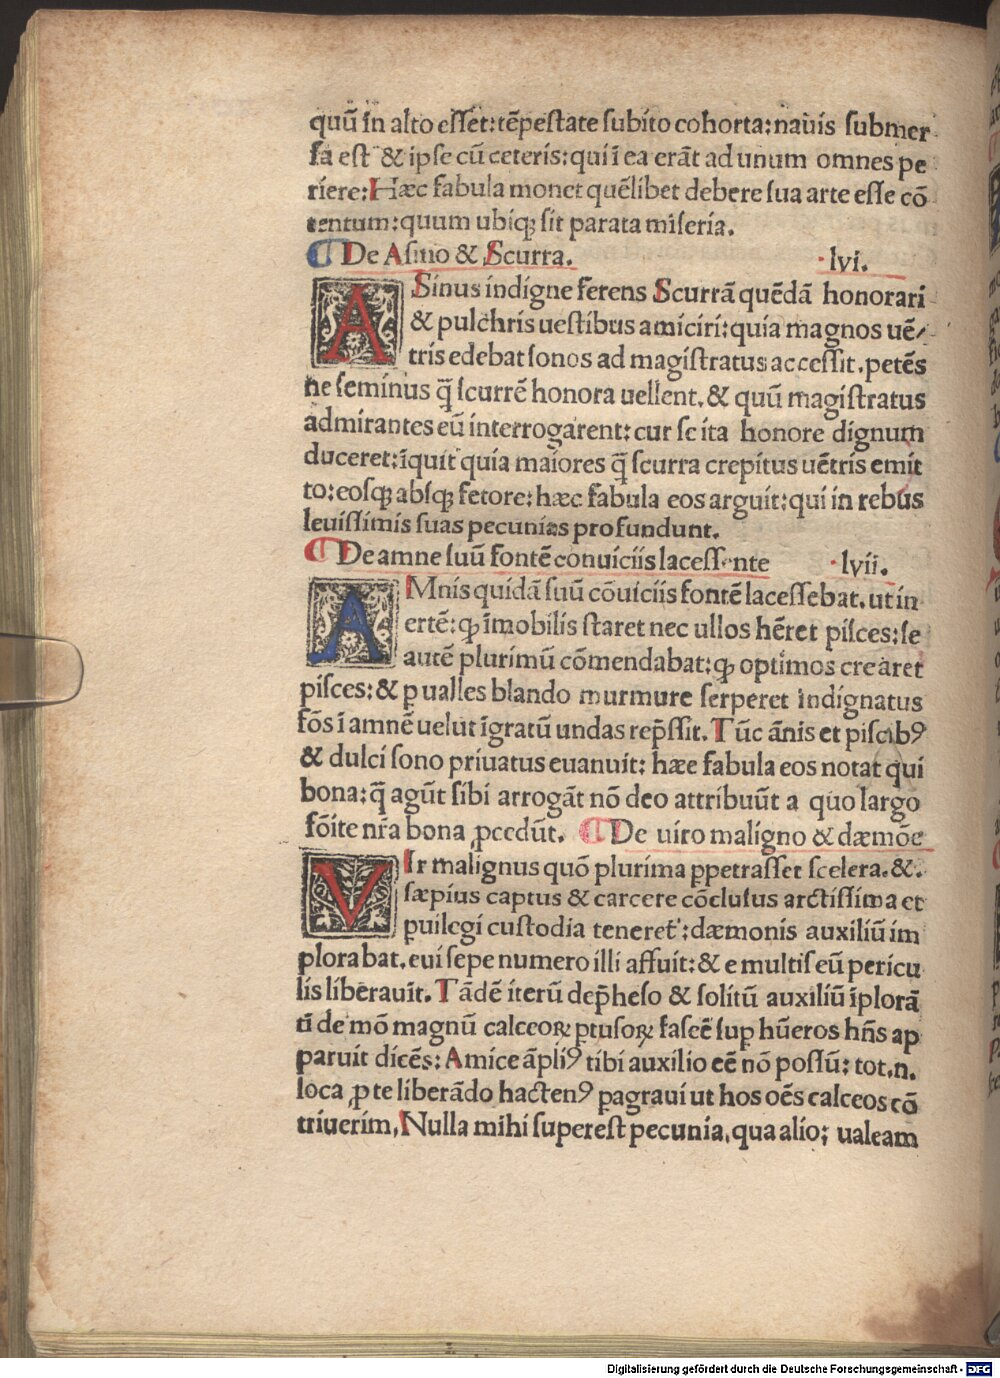 quū in alto esset: tēpestate subito cohorta: nauis submer
sa est & ipse cū ceteris: qui ī ea erāt ad unum omnes pe
riere: Hæc fabula monet quēlibet debere sua arte esse cō
tentum: quum ubiqꝫ sit parata miseria.
De Asino & Scurra. lvi.
ASinus indigne ferens Scurrā quēdā honorari
& pulchris uestibus amiciri: quia magnos uē/
tris edebat sonos ad magistratus accessit. petēs
ne se minus q̄ scurrē honora uellent. & quū magistratus
admirantes eū interrogarent: cur se ita honore dignum
duceret: īquit quia maiores q̄ scurra crepitus uētris emit
to: eosqꝫ absqꝫ fetore: hæc fabula eos arguit: qui in rebus
leuissimis suas pecunias profundunt.
De amne suū fontē conuiciis lacessente lvii.
AMnis quidā suū cōuiciis fontē lacessebat. ut in
ertē: ꝙ īmobilis staret nec ullos hēret pisces: se
autē plurimū cōmendabat: ꝙ optimos crearet
pisces: & ꝑ ualles blando murmure serperet indignatus
fōs ī amnē uelut īgratū undas rep̄ssit. Tūc ānis et piscibꝰ
& dulci sono priuatus euanuit: hæe fabula eos notat qui
bona: q̄ agūt sibi arrogāt nō deo attribuūt a quo largo
fōite nr̄a bona ꝓcedūt. De uiro maligno & dæmōe
VIr malignus quō plurima ꝑpetrasset scelera. &.
sæpius captus & carcere cōclusus arctissima et
puilegi custodia teneret᷑: dæmonis auxiliū im
plorabat. eui sepe numero illi affuit: & e multis eū pericu
lis liberauit. Tādē iterū dep̄heso & solitū auxiliū īplorā
ti de mō magnū calceoꝝ ꝑtusoꝝ fascē sup hūeros hn̄s ap
paruit dicēs: Amice āpliꝰ tibi auxilio eē nō possū: tot.n.
loca ꝓ te liberādo hactenꝰ pagraui ut hos oēs calceos cō
triuerim, Nulla mihi superest pecunia, qua alio; ualeam
Digitalisierung gefördert durch die Deutsche Forschungsgemeinschaft - DFG